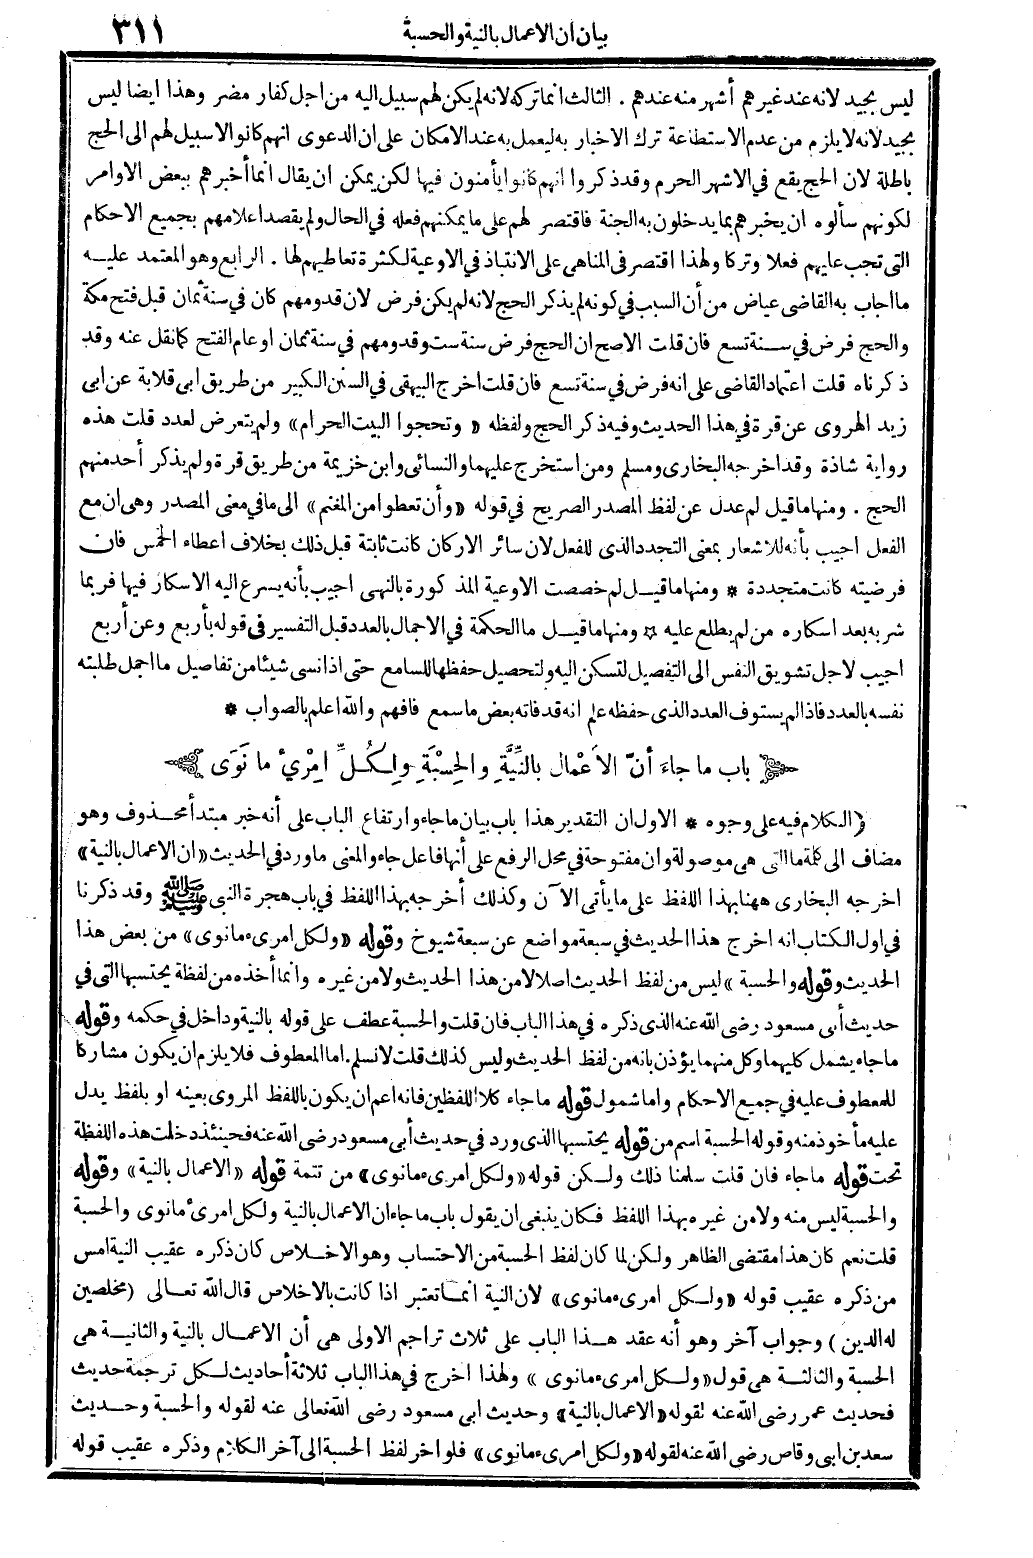 بيان أن الاعمال بالنية والحسبة ٣١١
ليس بجيد لانه عند غيرهم أشهر منه عندهم . الثالث انما تركه لانه لم يكن لهم سبيل اليه من اجل كفار مضر وهذا ايضا ليس
بجيد لانه لا يلزم من عدم الاستطاعة ترك الاخبار به ليعمل به عند الامكان على ان الدعوى انهم كانوا لا سبيل لهم الى الحج
باطلة لان الحج يقع في الاشهر الحرم وقد ذكروا انهم كانوا يأمنون فيها لكن يمكن ان يقال انما أخبرهم ببعض الاوامر
لكونهم سألوه ان يخبرهم بما يدخلون به الجنة فاقتصر لهم على ما يمكنهم فعله في الحال ولم يقصد اعلامهم بجميع الاحكام
التى تجب عليهم فعلا وتركا ولهذا اقتصر فى المناهى على الانتباذ في الاوعية لكثرة تعاطيهم لها . الرابع وهو المعتمد عليه
ما اجاب به القاضى عياض من أن السبب في كونه لم يذكر الحج لانه لم يكن فرض لان قدومهم كان في سنة ثمان قبل فتح مكة
والحج فرض في سنة تسع فان قلت الاصح ان الحج فرض سنة ست وقدومهم في سنة ثمان او عام الفتح كما نقل عنه وقد
ذكرناه قلت اعتماد القاضى على انه فرض في سنة تسع فان قلت اخرج البيهقى في السنن الكبير من طريق ابى قلابة عن ابى
زيد الهروى عن قرة في هذا الحديث وفيه ذكر الحج ولفظه « وتحجوا البيت الحرام» ولم يتعرض لعدد قلت هذه
رواية شاذة وقد اخرجه البخارى ومسلم ومن استخرج عليهما والنسائى وابن خزيمة من طريق قرة ولم يذكر أحد منهم
الحج . ومنها ما قيل لم عدل عن لفظ المصدر الصريح في قوله «وأن تعطوا من المغنم» الى ما في معنى المصدر وهى ان مع
الفعل اجيب بأنه للاشعار بمعنى التجدد الذى للفعل لان سائر الاركان كانت ثابتة قبل ذلك بخلاف اعطاء الخمس فان
فرضيته كانت متجددة * ومنها ما قيل لم خصصت الاوعية المذكورة بالنهى اجيب بأنه يسرع اليه الاسكار فيها فربما
شربه بعد اسكاره من لم يطلع عليه * ومنها ما قيل ما الحكمة في الاجمال بالعدد قبل التفسير فى قوله بأربع وعن أربع
اجيب لاجل تشويق النفس الى التفصيل لتسكن اليه ولتحصيل حفظها للسامع حتى اذا نسى شيئا من تفاصيل ما اجمل طلبته
نفسه بالعدد فاذا لم يستوف العدد الذى حفظه علم انه قد فاته بعض ما سمع فافهم والله اعلم بالصواب *
باب ما جاءَ أَنَّ الاَعْمال بالنِّيَّةِ والحِسْبَةِ ولِكُلِّ امْرِئٍ ما نَوَى
(الكلام فيه على وجوه * الاول ان التقدير هذا باب بيان ما جاء وارتفاع الباب على أنه خبر مبتدأ محذوف وهو
مضاف الى كلمة ما التى هى موصولة وان مفتوحة في محل الرفع على أنها فاعل جاء والمعنى ما ورد في الحديث «ان الاعمال بالنية»
اخرجه البخارى ههنا بهذا اللفظ على ما يأتى الآن وكذلك أخرجه بهذا اللفظ في باب هجرة النبى ﷺ وقد ذكرنا
في اول الكتاب انه اخرج هذا الحديث في سبعة مواضع عن سبعة شيوخ وقوله «ولكل امرىء ما نوى» من بعض هذا
الحديث وقوله والحسبة » ليس من لفظ الحديث اصلا لا من هذا الحديث ولا من غيره وانما أخذه من لفظة يحتسبها التى في
حديث أبى مسعود رضى الله عنه الذى ذكره في هذا الباب فان قلت والحسبة عطف على قوله بالنية وداخل في حكمه وقوله
ما جاء يشمل كليهما وكل منهما يؤذن بانه من لفظ الحديث وليس كذلك قلت لا نسلم . اما المعطوف فلا يلزم ان يكون مشاركا
للمعطوف عليه في جميع الاحكام واما شمول قوله ما جاء كلا اللفظين فانه اعم ان يكون باللفظ المروى بعينه او بلفظ يدل
عليه مأخوذ منه وقوله الحسبة اسم من قوله يحتسبها الذى ورد في حديث أبى مسعود رضى الله عنه فحينئذ دخلت هذه اللفظة
تحت قوله ما جاء فان قلت سلمنا ذلك ولكن قوله «ولكل امرىء ما نوى» من تتمة قوله «الاعمال بالنية» وقوله
والحسبة ليس منه ولا من غيره بهذا اللفظ فكان ينبغى ان يقول باب ما جاء ان الاعمال بالنية ولكل امرىء ما نوى والحسبة
قلت نعم كان هذا مقتضى الظاهر ولكن لما كان لفظ الحسبة من الاحتساب وهو الاخلاص كان ذكره عقيب النية امس
من ذكره عقيب قوله «ولكل امرىء ما نوى» لان النية انما تعتبر اذا كانت بالاخلاص قال الله تعالى (مخلصين
له الدين ) وجواب آخر وهو أنه عقد هذا الباب على ثلاث تراجم الاولى هى أن الاعمال بالنية والثانية هى
الحسبة والثالثة هى قول «ولكل امرىء ما نوى » ولهذا اخرج في هذا الباب ثلاثة أحاديث لكل ترجمة حديث
فحديث عمر رضى الله عنه لقوله «الاعمال بالنية» وحديث ابى مسعود رضى الله تعالى عنه لقوله والحسبة وحديث
سعد بن ابى وقاص رضى الله عنه لقوله «ولكل امرىء ما نوى» فلو اخر لفظ الحسبة الى آخر الكلام وذكره عقيب قوله